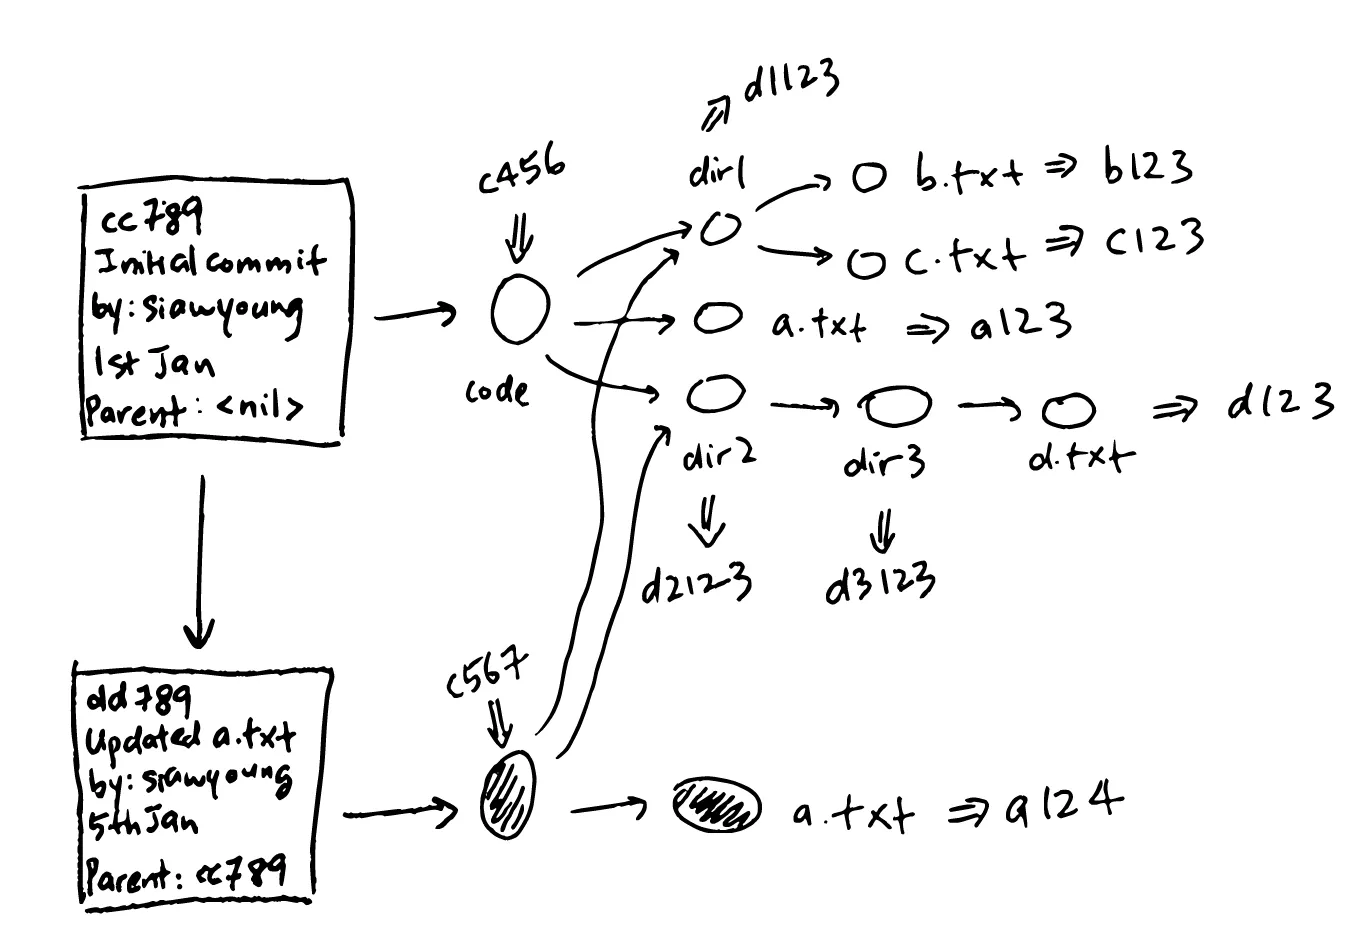 d1123
c456
dir1
b.txt ⇒ b123
cc789
Initial commit
by: siawyoung
1st Jan
Parent: <nil>
c.txt ⇒ c123
a.txt ⇒ a123
code
d123
dir2
dir3
d.txt
d2123
d3123
c567
dd789
Updated a.txt
by: siawyoung
5th Jan
Parent: cc789
a.txt ⇒ a124